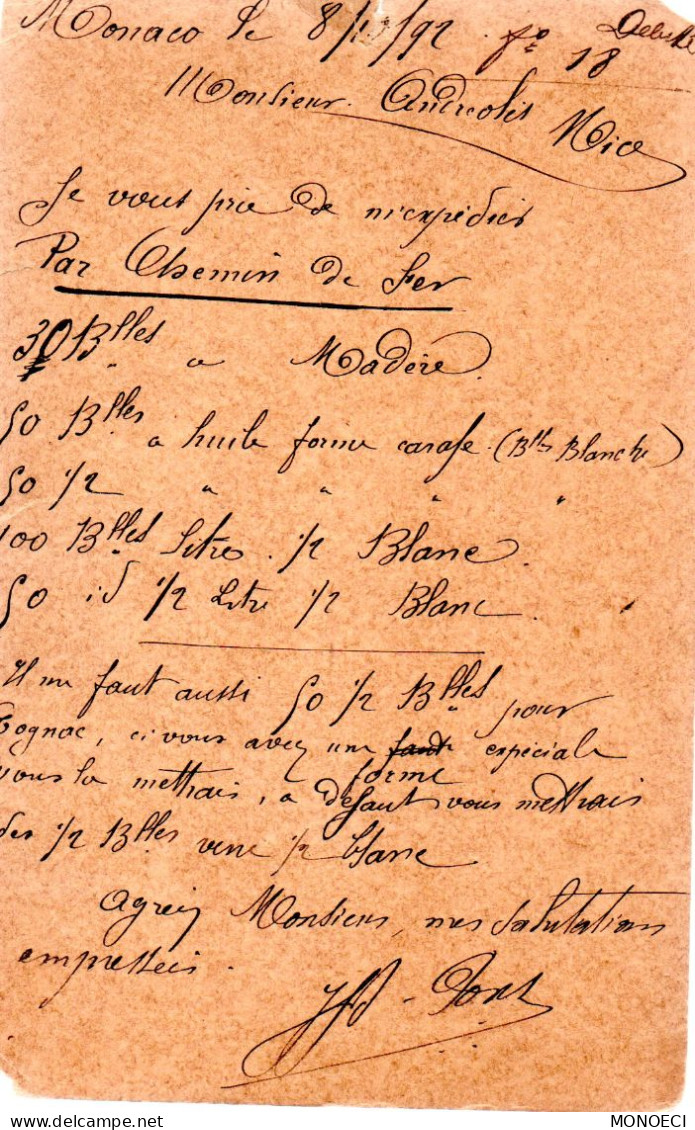 Monaco le 8/ /92 fo 18
Monsieur Nice
Je vous prie de m'expédier
Par Chemin de Fer
30 Blles a Madère.
50 Blles a huile forme carafe (Blles Blanche)
50 1/2 " " " "
100 Blles Litres 1/2 Blanc.
50 id 1/2 Litre 1/2 Blanc
Il me faut aussi 50 1/2 Blles pour
Cognac, ci vous avez une faut expéciale
forme
vous la mettrais, a défaut vous mettrais
des 1/2 Blles verre 1/2 blanc
Agréez Monsieur, mes Salutations
empresseis.
DELCAMPE.NET
MONOECI